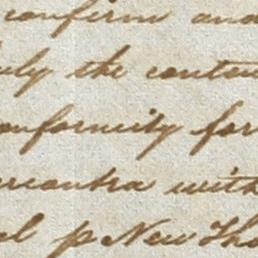 confirm and
uly the conten
onformity for
ercantra with
al p New Tho